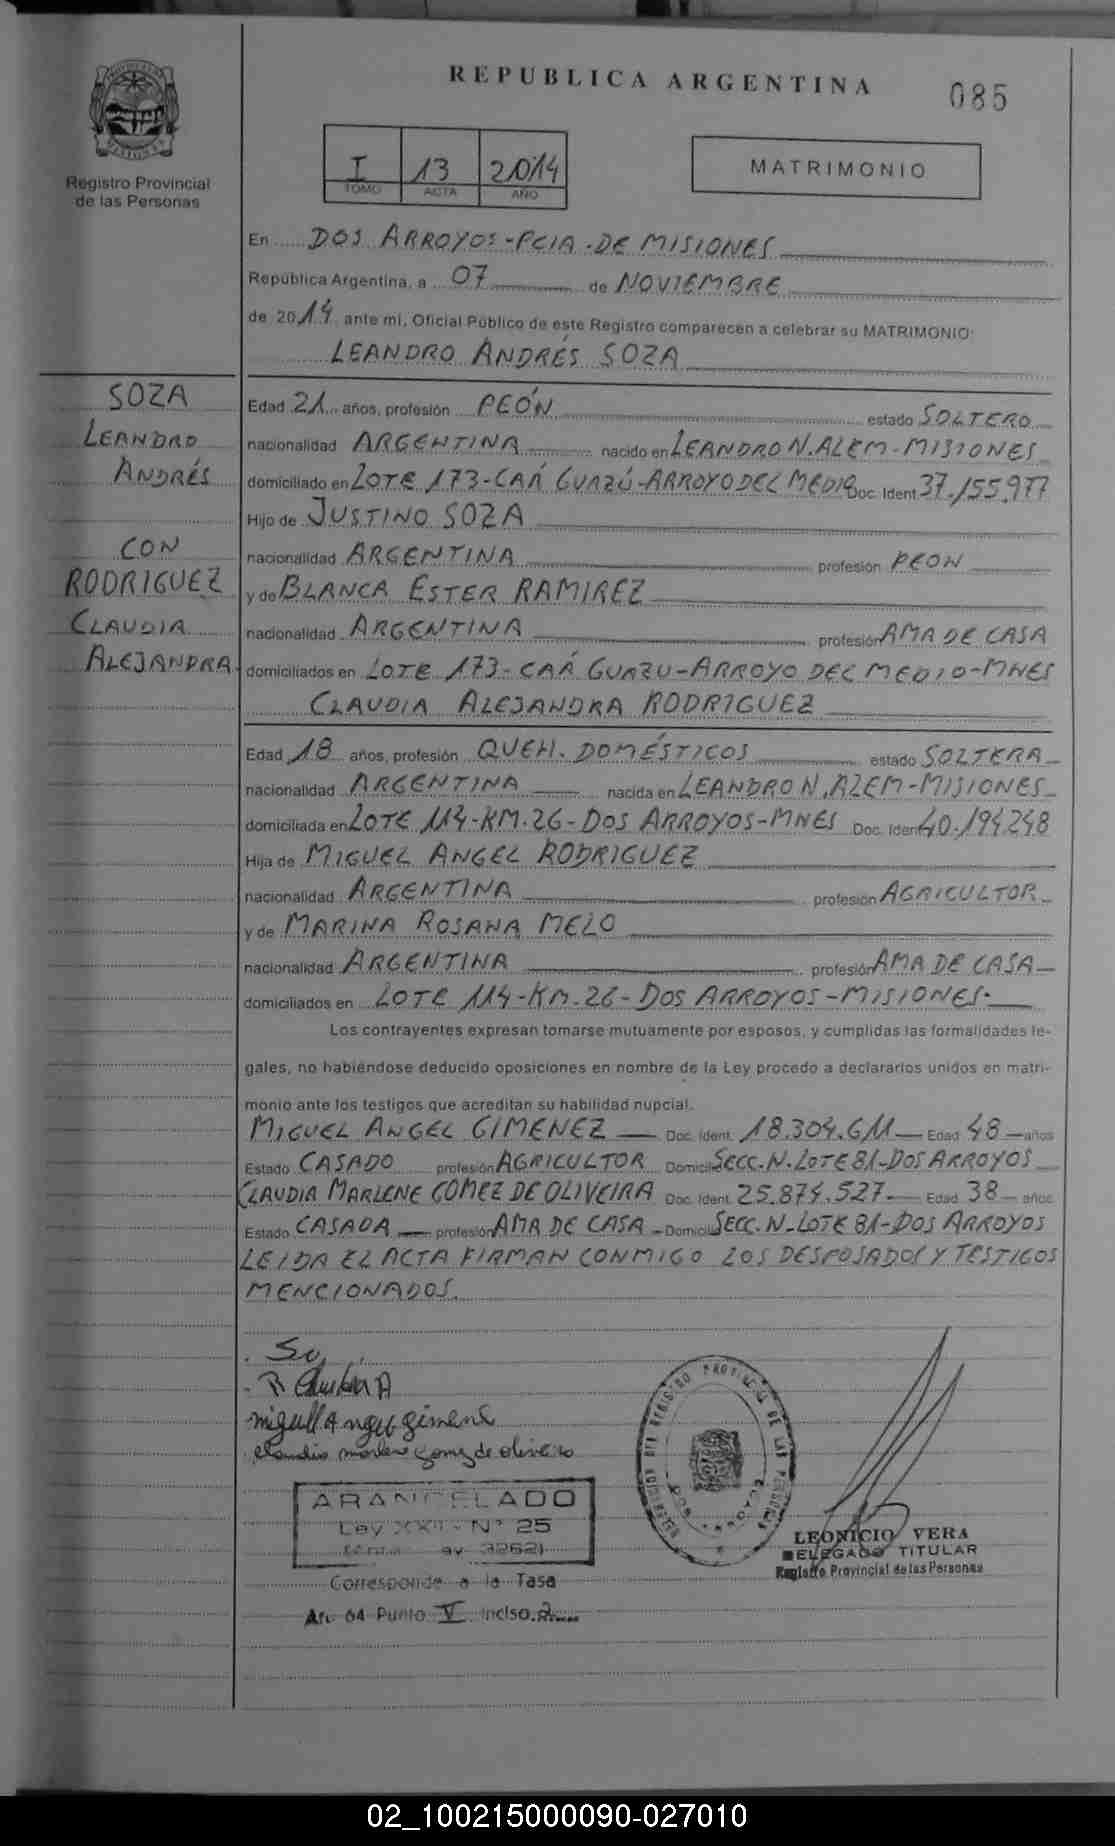 REPUBLICA ARGENTINA
085
PROVINCIA DE MISIONES
Registro Provincial
de las Personas
I 13 2014
TOMO ACTA AÑO
MATRIMONIO
En DOS ARROYOS-PCIA.DE MISIONES
República Argentina, a 07 de NOVIEMBRE
de 2014 ante mí, Oficial Público de este Registro comparecen a celebrar su MATRIMONIO:
LEANDRO ANDRÉS SOZA
SOZA
LEANDRO
ANDRÉS
CON
RODRIGUEZ
CLAUDIA
ALEJANDRA
Edad 21 años, profesión PEÓN estado SOLTERO
nacionalidad ARGENTINA nacido en LEANDRO N.ALEM-MISIONES
domiciliado en LOTE 173-CAÁ GUAZÚ-ARROYO DEL MEDIO Doc. Ident. 37.155.977
Hijo de JUSTINO SOZA
nacionalidad ARGENTINA profesión PEON
y de BLANCA ESTER RAMIREZ
nacionalidad ARGENTINA profesión AMA DE CASA
domiciliados en LOTE 173-CAÁ GUAZU-ARROYO DEL MEDIO-MNES
CLAUDIA ALEJANDRA RODRIGUEZ
Edad 18 años, profesión QUEH. DOMÉSTICOS estado SOLTERA
nacionalidad ARGENTINA nacida en LEANDRO N.ALEM-MISIONES
domiciliada en LOTE 114-KM.26-DOS ARROYOS-MNES Doc. Ident. 40.194.248
Hija de MIGUEL ANGEL RODRIGUEZ
nacionalidad ARGENTINA profesión AGRICULTOR
y de MARINA ROSANA MELO
nacionalidad ARGENTINA profesión AMA DE CASA
domiciliados en LOTE 114-KM.26-DOS ARROYOS-MISIONES.
Los contrayentes expresan tomarse mutuamente por esposos, y cumplidas las formalidades le-
gales, no habiéndose deducido oposiciones en nombre de la Ley procedo a declararlos unidos en matri-
monio ante los testigos que acreditan su habilidad nupcial.
MIGUEL ANGEL GIMENEZ Doc. Ident. 18.304.611 Edad 48 años
Estado CASADO profesión AGRICULTOR Domicilio SECC.N.LOTE 81-DOS ARROYOS
CLAUDIA MARLENE GOMEZ DE OLIVEIRA Doc. Ident. 25.874.527 Edad 38 años
Estado CASADA profesión AMA DE CASA Domicilio SECC.N-LOTE 81-DOS ARROYOS
LEIDA EL ACTA FIRMAN CONMIGO LOS DESPOSADOS Y TESTIGOS
MENCIONADOS.
R Claudia A
miguel Angel gimene
claudia marlene gomez de oliveira
DELEGACION DEL REGISTRO PROVINCIAL DE LAS PERSONAS
DOS ARROYOS
ARANCELADO
Ley XXII - N° 25
3262)
Corresponde a la Tasa
Art. 64 Punto V Inciso 2
LEONICIO VERA
DELEGADO TITULAR
Registro Provincial de las Personas
02_100215000090-027010